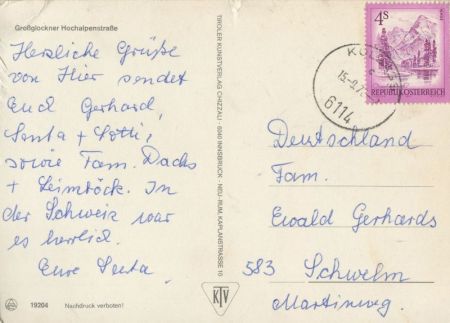 Großglockner Hochalpenstraße
Herzliche Grüße
von Hier sendet
Euch Gerhard,
Senta + Lotti,
sowie Fam. Dachs
+ Leimböck. In
der Schweiz war
es herrlich.
Eure Senta.
19204 Nachdruck verboten!
TIROLER KUNSTVERLAG CHIZZALI · 6040 INNSBRUCK - NEU-RUM, KAPLANSTRASSE 10
KTV
4S
REPUBLIK ÖSTERREICH
6114
Deutschland
Fam.
Ewald Gerhards
583 Schwelm
Martinweg.